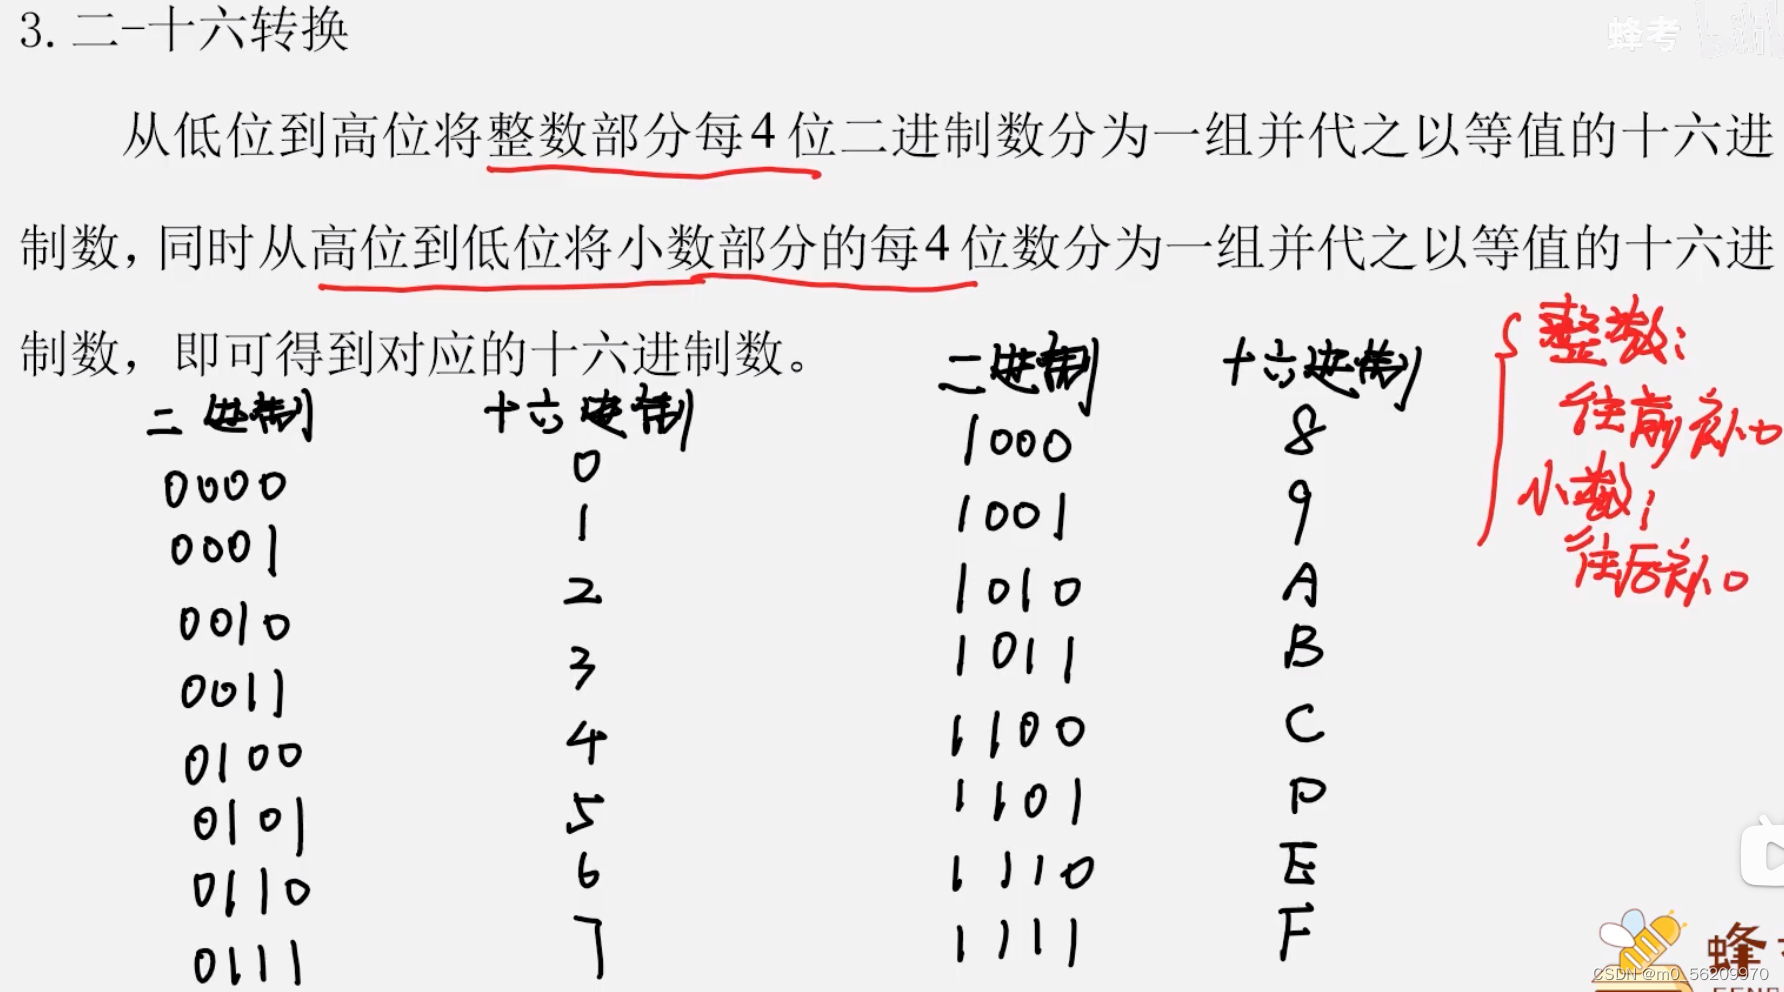 3. 二-十六转换
蜂考
从低位到高位将整数部分每4位二进制数分为一组并代之以等值的十六进
制数，同时从高位到低位将小数部分的每4位数分为一组并代之以等值的十六进
制数，即可得到对应的十六进制数。
二进制 十六进制
0000 0
0001 1
0010 2
0011 3
0100 4
0101 5
0110 6
0111 7
二进制 十六进制
1000 8
1001 9
1010 A
1011 B
1100 C
1101 D
1110 E
1111 F
整数：
往前补0
小数：
往后补0
蜂
CSDN @m0_56209970